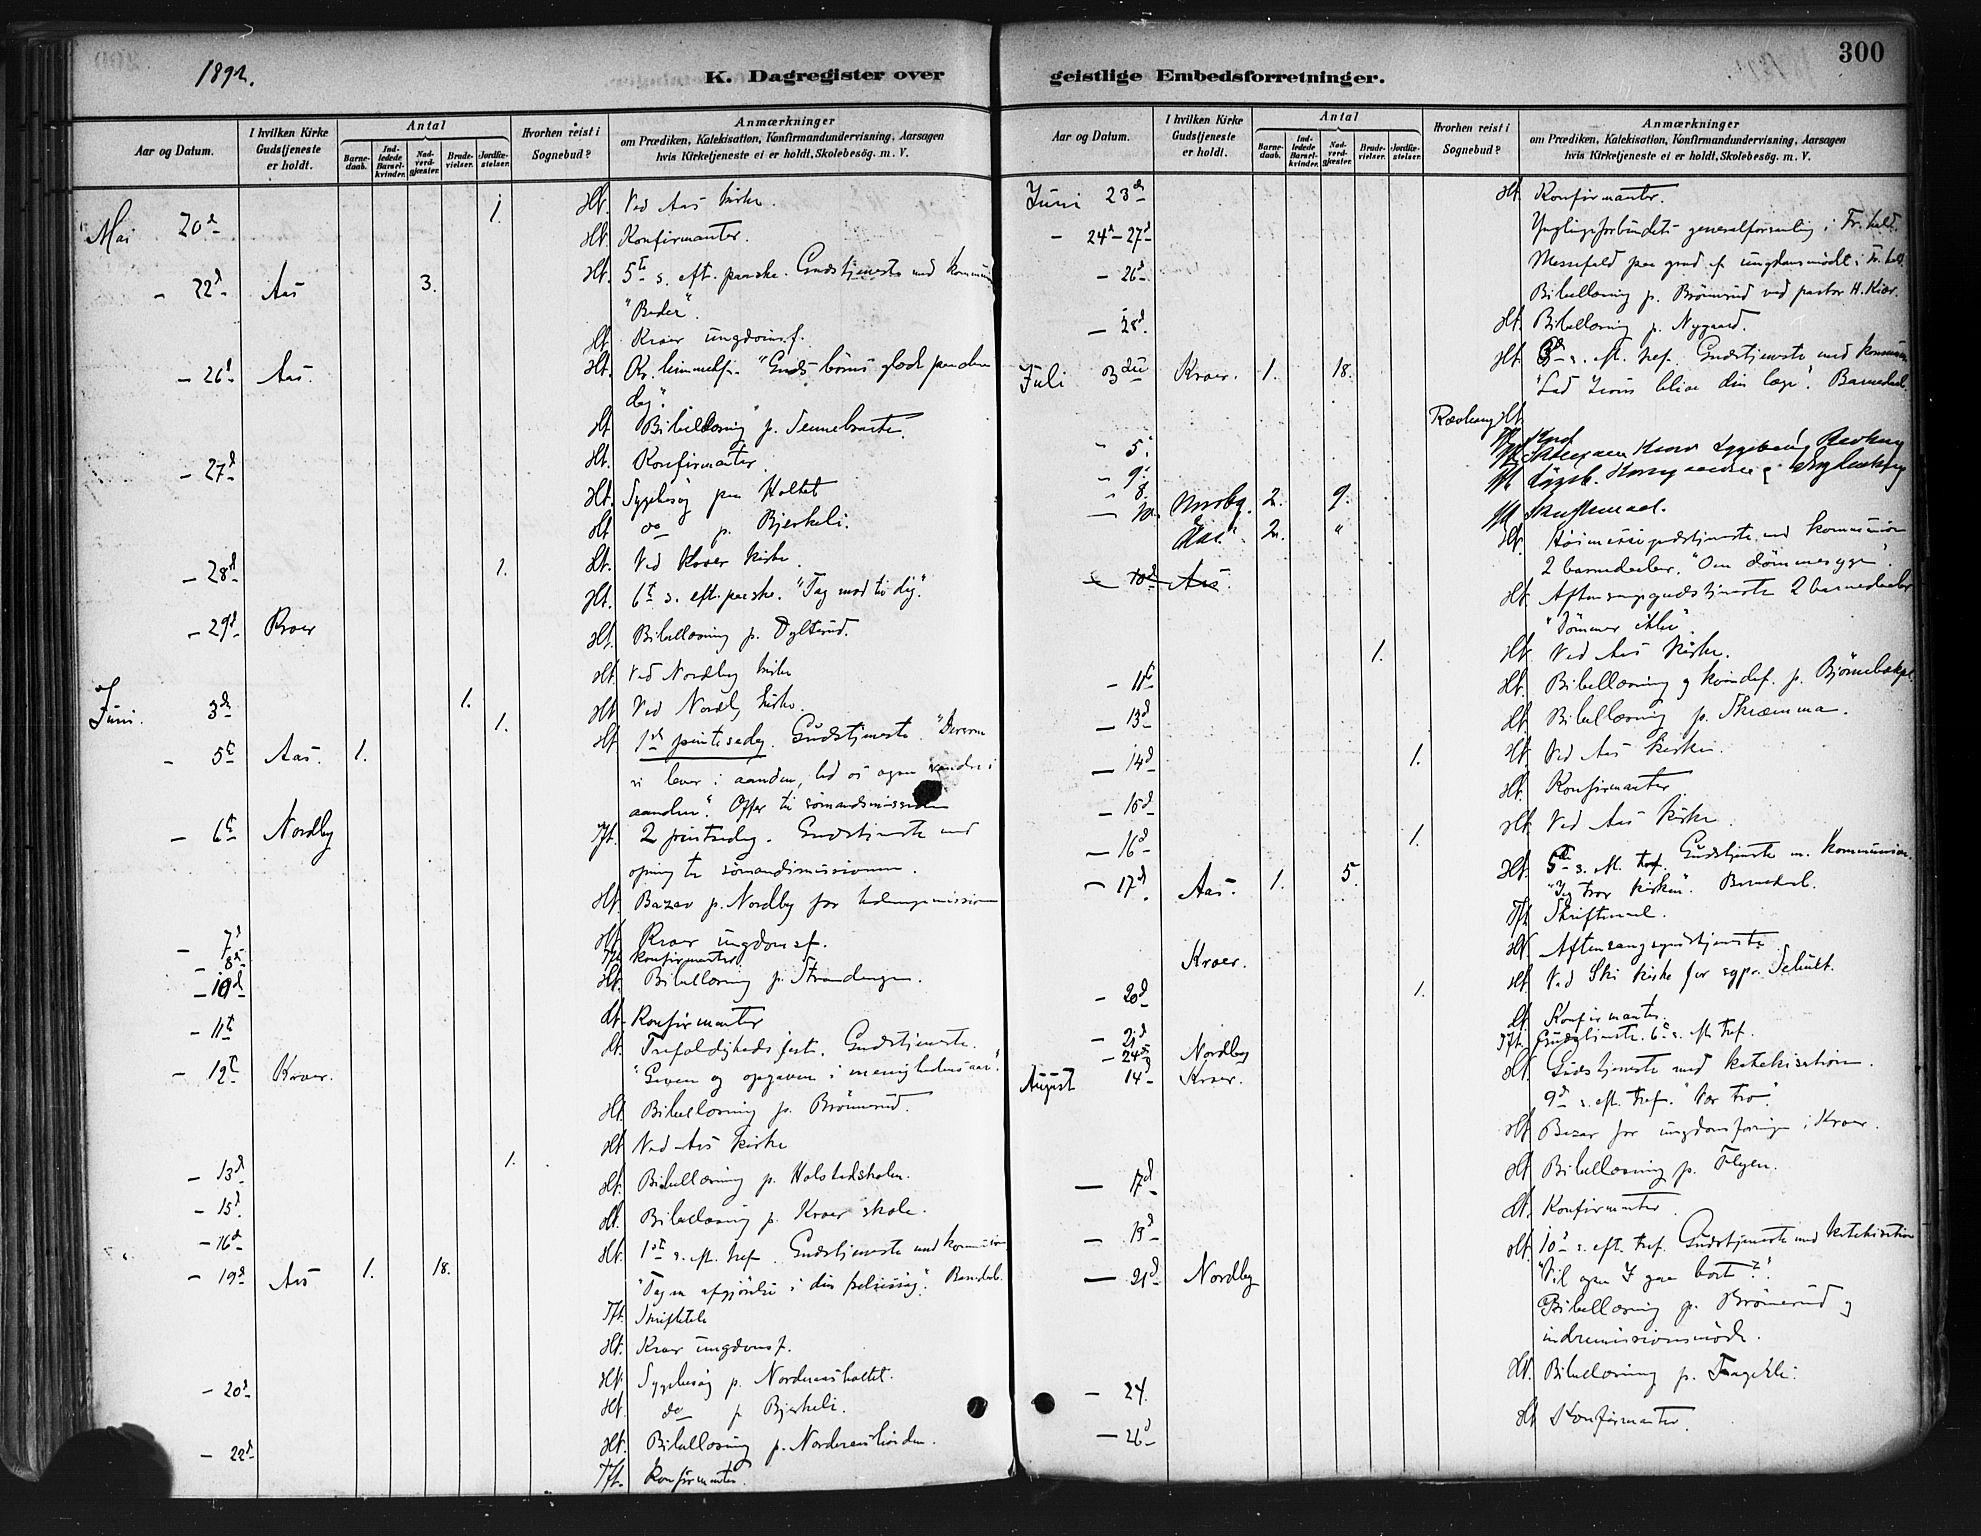 1892.
K. Dagregister over
geistlige Embedsforretninger.
300
Aar og Datum.
I hvilken Kirke Gudstjeneste er holdt.
Antal
Barnedaab.
Indledede Barselkvinder.
Nadverdgjæster.
Brudevielser.
Jordfæstelser.
Hvorhen reist i Sognebud?
Anmærkninger
om Prædiken, Katekisation, Konfirmandundervisning, Aarsagen
hvis Kirketjeneste ei er holdt, Skolebesøg. m. V.
Mai 20d 1. Ht. Ved Aas kirke.
Ht. Konfirmanter.
- 22d Aas 3. Ht. 5te s. eft. paaske. Gudstjeneste med kommunion
"Beder".
Ht. Kroer ungdomsf.
- 26d Aas. Ht. Kr. himmelf. "Guds børns glæde paa denne
dag".
Ht. Bibellæsning p.
- 27d Ht. Konfirmanter.
Ht. Sygebesøg paa Holtet
Ht. do p. Bjerkeli.
- 28d 1. Ht. Ved Kroer kirke.
- 29d Kroer Ht. 6te s. eft. paaske. "Tag mod til dig".
Ht. Bibellæsning p. Dyltsrud.
Ht. Ved Nordby kirke
Juni. 3de 1. Ht. Ved Nordby kirke.
1.
- 5te Aas. 1. Ht. 1ste pintsedag. Gudstjeneste. "Dersom
vi lever i aanden, lad os ogsaa vandre i
aanden". Offer til sømandsmissionen
- 6te Nordby Ht. 2 pintsedag. Gudstjeneste med
ofring til sømandsmissionen.
Ht. Bazar p. Nordby for hedningemissionen
- 7d Ht. Kroer ungdomsf.
- 8de Ht. Konfirmanter
- 10d Ht. Bibellæsning p. Strandengen.
- 11te Ht. Konfirmanter
- 12te Kroer. Ht. Trefoldigheds fest. Gudstjeneste.
"Given og opgaven i menighedens aar".
Ht. Bibellæsning p. Brønnerud.
Ht. Ved Aas kirke
- 13d 1. Ht. Bibellæsning p. Holstadskolen.
- 15d Ht. Bibellæsning p. Kroer skole.
- 16d
- 19d Aas 1. 18. Ht. 1ste s. eft. tref. Gudstjeneste med kommunion
"Tag en afgjørelse i din frelsessag". Barnedaab.
Ht. Skriftetale
Ht. Kroer ungdomsf.
- 20d Ht. Sygebesøg p. Norderaasholtet.
Ht. do p. Bjerkeli.
- 22d Ht. Bibellæsning p.
Ht. Konfirmanter.
Aar og Datum.
I hvilken Kirke Gudstjeneste er holdt.
Antal
Barnedaab.
Indledede Barselkvinder.
Nadverdgjæster.
Brudevielser.
Jordfæstelser.
Hvorhen reist i Sognebud?
Anmærkninger
om Prædiken, Katekisation, Konfirmandundervisning, Aarsagen
hvis Kirketjeneste ei er holdt, Skolebesög. m. V.
Juni 23de Ht. Konfirmanter.
- 24d-27d Ynglingeforbundets generalforsamling i Fr.hald.
- 26d Messefald paa grund af ungdomsmødet i Fr.hald.
Bibellæsning p. Brønnerud ved pastor H. Kiær.
- 28d. Ht. Bibellæsning p. Nygaard.
Juli 3die Kroer. 1. 18. Ht. 3de s. eft. tref. Gudstjeneste med kommunion
"Lad Jesus blive din læge". Barnedaab.
Rævhaug Ht.
- 5.
- 9.
- 8
- 10. Nordby. 2. 9. Ht. Skriftemaal.
Aas. 2. " Ht. Høimessegudstjeneste med kommunion
2 barnedaaber. "Om dømmesyge".
- 10d Aas. Ht. Aftensangsgudstjeneste 2 barnedaaber
"Dømmer ikke".
1. Ht. Ved Aas kirke.
- 11te Ht. Bibellæsning og kvindef. p.
- 13d Ht. Bibellæsning p. Skræmma.
- 14d 1. Ht. Ved Aas kirke.
- 15d Ht. Konfirmanter
- 16d 1. Ht. Ved Aas kirke.
- 17d. Aas. 1. 5. Ht. 5te s. eft. tref. Gudstjeneste m. kommunion.
"Jeg tror kirken". Barnedaab.
Ht. Skriftemaal.
Kroer. Ht. Aftensangsgudstjeneste
- 20d 1. Ht. Ved Ski kirke for sgpr. Schult.
- 21d Ht. Konfirmanter.
- 24d Nordby Ht. Gudstjeneste. 6te s. eft. tref.
August 14d Kroer. Ht. Gudstjeneste med katekisation.
9d s. eft. tref. "Vor tro".
Ht. Bazar for ungdomsforeningen i Kroer.
- 17d Ht. Bibellæsning p.
- 19d Ht. Konfirmanter.
- 21d Nordby Ht. 10d s. eft. tref. Gudstjeneste med katekisation
"Vil ogsaa I gaa bort?".
Bibellæsning p. Brønnerud og
indremissionsmøde.
- 24. Ht. Bibellæsning p.
- 26d Ht. Konfirmanter.